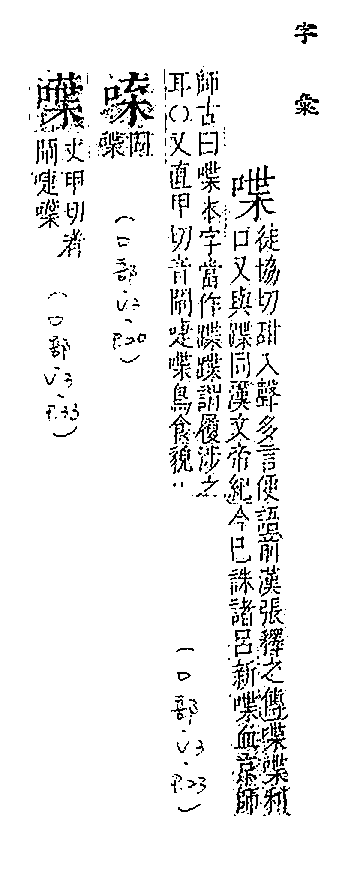 字彙
喋
徒協切甜入聲多言便語前漢張釋之傳喋喋利
口又與蹀同漢文帝紀今已誅諸呂新喋血京師
師古曰喋本字當作蹀蹀謂履涉之
耳〇又直甲切音閘唼喋鳥食貌
(口部.V3.P.23)
同
喋
(口部.V3.P.20)
丈甲切音
閘唼喋
(口部.V3.P.33)